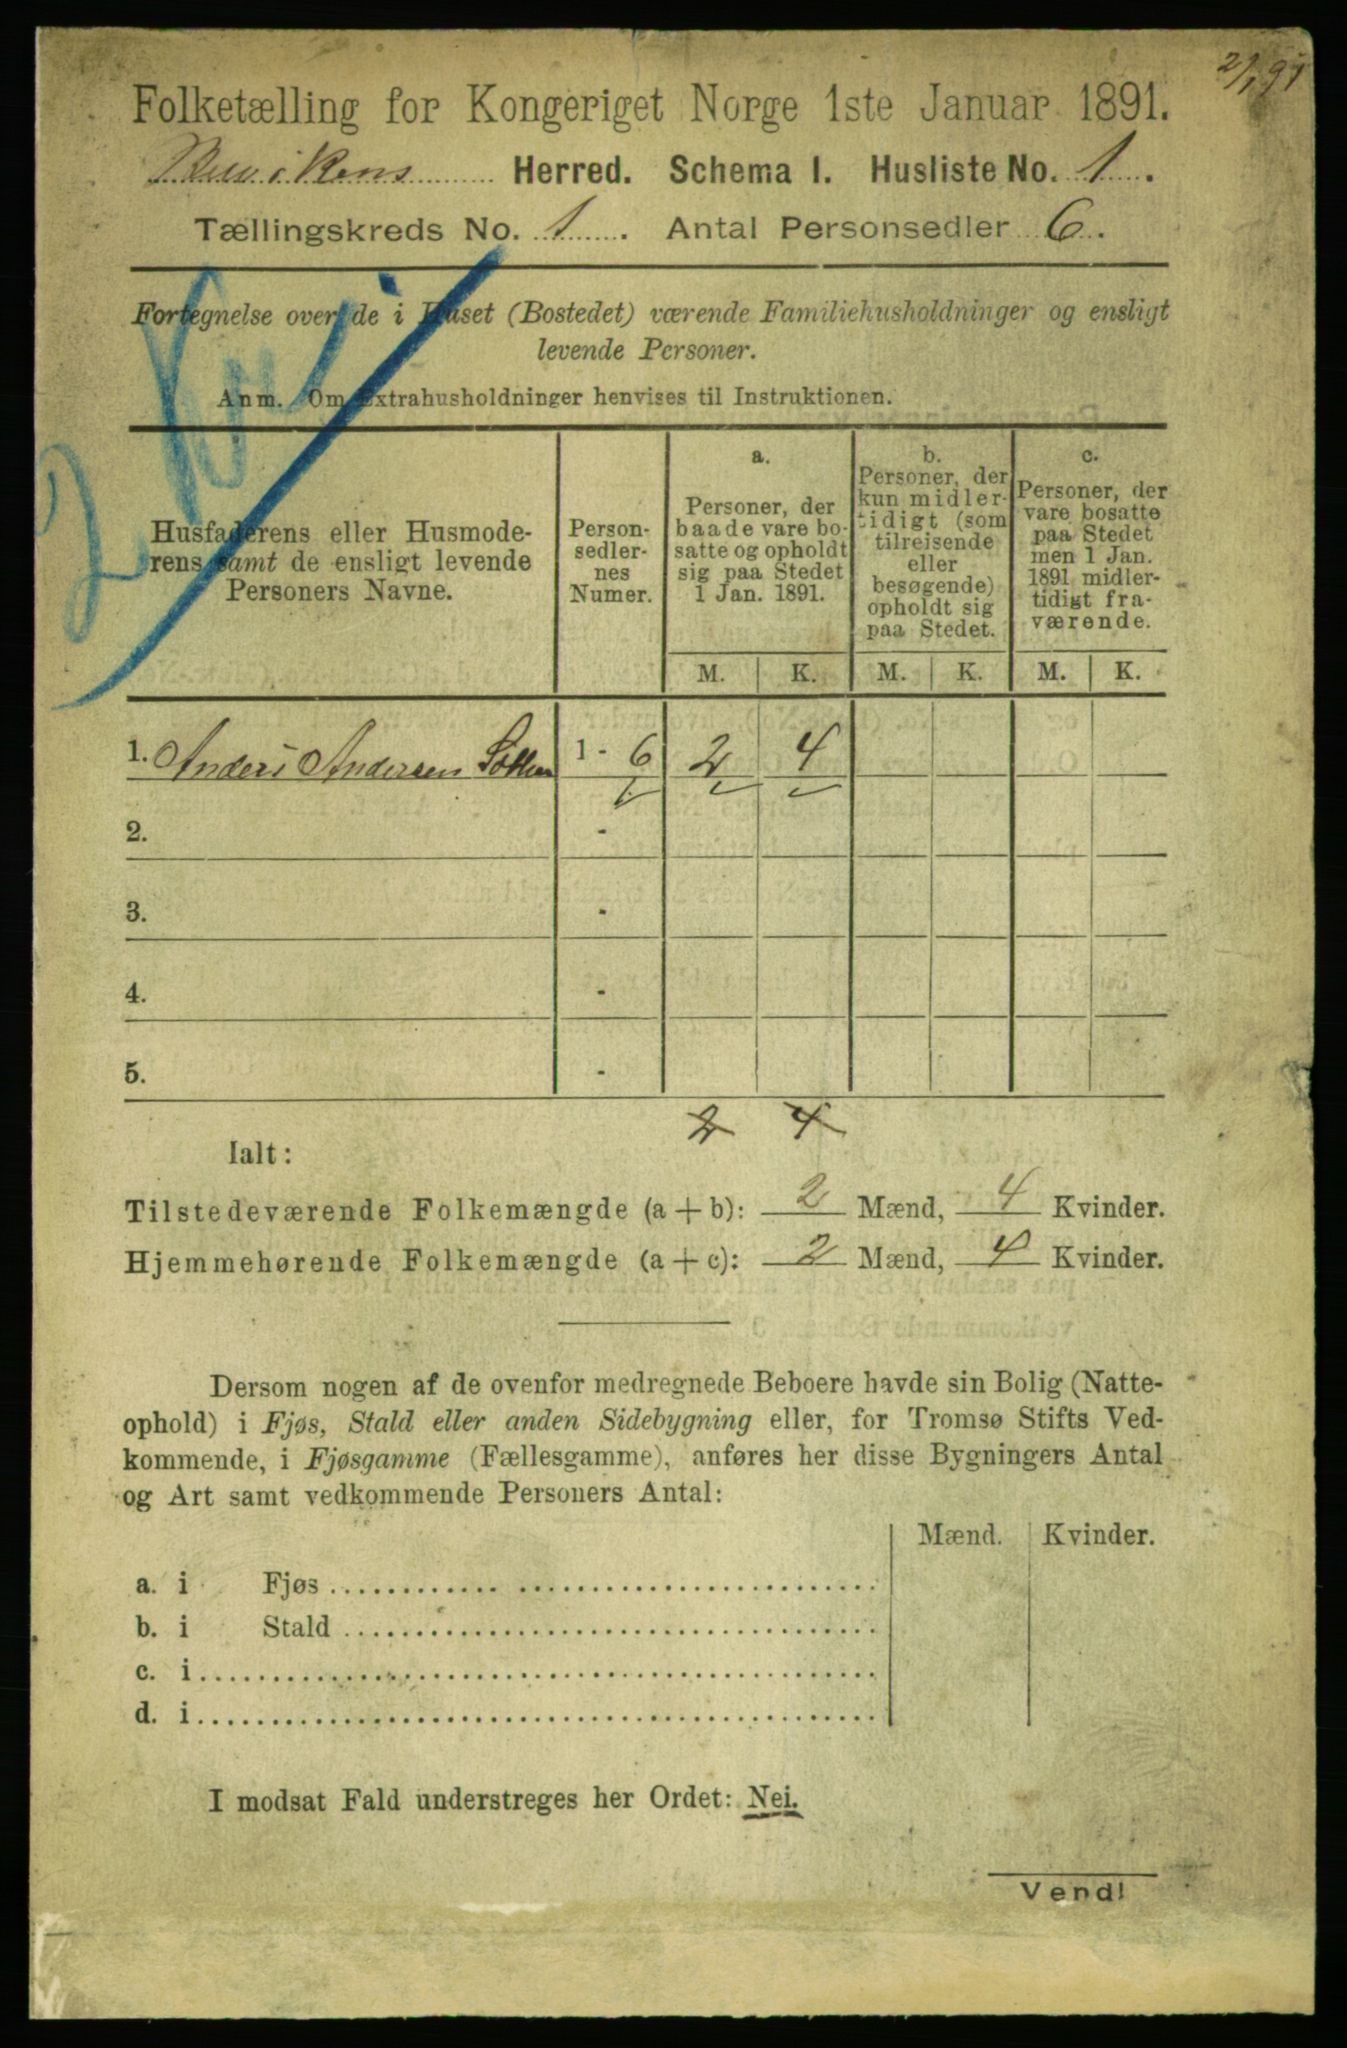 2/1 91
Folketælling for Kongeriget Norge 1ste Januar 1891.
Herred. Schema I. Husliste No. 1.
Tællingskreds No. 1. Antal Personsedler 6.
Fortegnelse over de i Huset (Bostedet) værende Familiehusholdninger og ensligt
levende Personer.
Anm. Om Extrahusholdninger henvises til Instruktionen.
Husfaderens eller Husmode-
rens samt de ensligt levende
Personers Navne.
Person-
sedler-
nes
Numer.
a.
Personer, der
baade vare bo-
satte og opholdt
sig paa Stedet
1 Jan. 1891.
b.
Personer, der
kun midler-
tidigt (som
tilreisende
eller
besøgende)
opholdt sig
paa Stedet.
c.
Personer, der
vare bosatte
paa Stedet
men 1 Jan.
1891 midler-
tidigt fra-
værende.
M. K. M. K. M. K.
1. Anders Andersen 1 - 6 2 4
2. -
3. -
4. -
5. -
2 4
Ialt:
Tilstedeværende Folkemængde (a + b): 2 Mænd, 4 Kvinder.
Hjemmehørende Folkemængde (a + c): 2 Mænd, 4 Kvinder.
Dersom nogen af de ovenfor medregnede Beboere havde sin Bolig (Natte-
ophold) i Fjøs, Stald eller anden Sidebygning eller, for Tromsø Stifts Ved-
kommende, i Fjøsgamme (Fællesgamme), anføres her disse Bygningers Antal
og Art samt vedkommende Personers Antal:
Mænd. Kvinder.
a. i Fjøs
b. i Stald
c. i
d. i
I modsat Fald understreges her Ordet: Nei.
Vend!